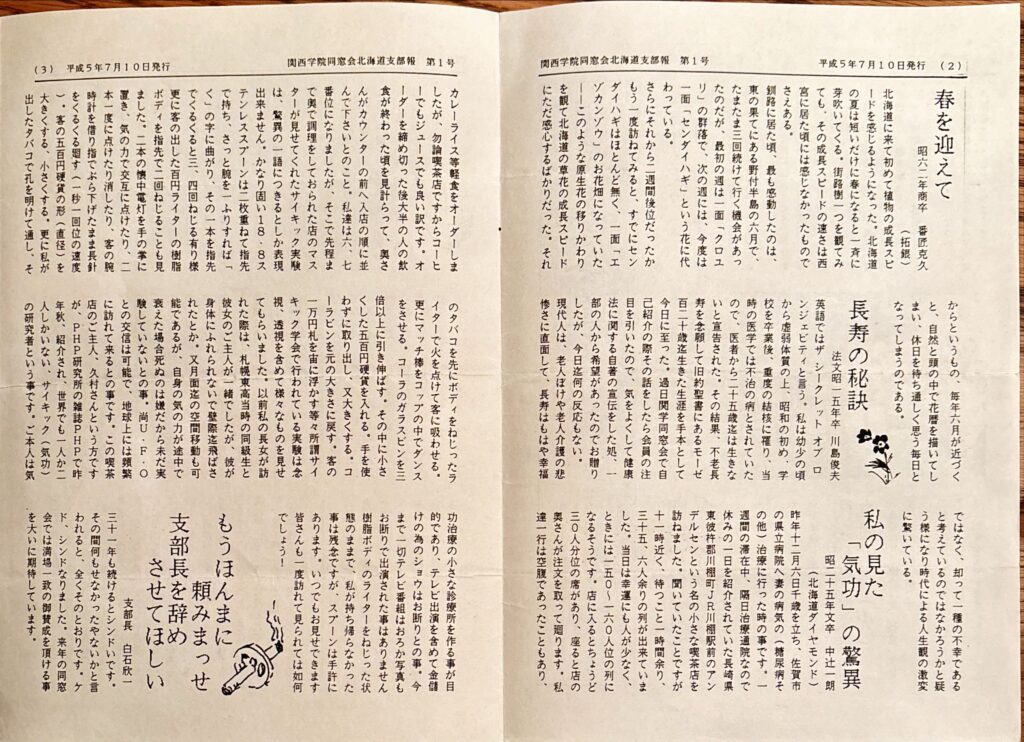 関西学院同窓会北海道支部報　第1号　平成5年7月10日発行　(2)
春を迎えて
昭六二年商卒　番匠克久
（拓銀）
北海道に来て初めて植物の成長スピ
ードを感じるようになった。北海道
の夏は短いだけに春になると一斉に
芽吹いてくる。街路樹一つを観てみ
ても、その成長スピードの速さは西
宮に居た頃には感じなかったもので
さえある。
釧路に居た頃、最も感動したのは、
東の果てにある野付半島の六月で、
たまたま三回続けて行く機会があっ
たのだが、最初の週は一面「クロユ
リ」の群落で、次の週には、今度は
一面「センダイハギ」という花に代
わっている。
さらにそれから二週間後位だったか
もう一度訪ねてみると、すでにセン
ダイハギはほとんど無く、一面「エ
ゾカンゾウ」のお花畑になっていた
──このような原生花の移りかわり
を観て北海道の草花の成長スピード
にただ感心するばかりだった。それ
からというもの、毎年六月が近づく
と、自然と頭の中で花暦を描いてし
まい、休日を待ち通しく思う毎日と
なってしまうのである。
長寿の秘訣
法文昭一五年卒　川島俊夫
英語ではザ　シークレット　オブ　ロ
ンジェビティと言う。私は幼少の頃
から虚弱体質の上、昭和の初め、学
校を卒業後、重度の結核に罹り、当
時の医学では不治の病とされていた
ので、医者から二十五歳迄は生きな
いと宣告された。その結果、不老長
寿を念願して旧約聖書にあるモーゼ
百二十歳迄生きた生涯を手本として
今日に至った。過日関学同窓会で自
己紹介の際その話をしたら会員の注
目を引いたので、気をよくして健康
法に関する自著の宣伝をした処、一
部の人から希望があったのでお贈り
したが、今日迄何の反応もない。
現代人は、老人ぼけや老人介護の悲
惨さに直面して、長寿はもはや幸福
ではなく、却って一種の不幸である
と考えているのではなかろうかと疑
う様になり時代による人生観の激変
に驚いている。
私の見た
「気功」の驚異
昭二十五年文卒　中辻一朗
（北海道ダイヤモンド）
昨年十二月六日千歳を立ち、佐賀市
の県立病院へ妻の病気の（糖尿病そ
の他）治療に行った時の事です。一
週間の滞在中、隔日治療通院なので
休みの一日を紹介されていた長崎県
東彼杵郡川棚町ＪＲ川棚駅前のアン
デルセンという名の小さな喫茶店を
訪ねました。聞いていたことですが
十一時近く、待つこと一時間余り、
三十五、六人余りの列が出来ていま
した。当日は幸運にも人が少なく、
ときには一五〇～一六〇人位の列に
なるそうです。店に入るとちょうど
三〇人分位の席があり、座ると店の
奥さんが注文を取って廻ります。私
達一行は空腹であったこともあり、
(3)　平成5年7月10日発行　関西学院同窓会北海道支部報　第1号
カレーライス等軽食をオーダーしま
したが、勿論喫茶店ですからコーヒ
ーでもジュースでも良い訳です。オ
ーダーを締め切った後大半の人の飲
食が終わった頃を見計らって、奥さ
んがカウンターの前へ入店の順に並
んで下さいとのこと。私達は六、七
番位になりましたが、そこで先程ま
で奥で調理をしておられた店のマス
ターが見せてくれたサイキック実験
は、驚異の一語につきるとしか表現
出来ません。かなり固い１８‐８ス
テンレススプーンは二枚重ねて指先
で持ち、さっと腕を一ふりすれば「
く」の字に曲がり、その一本を指先
でくるくると三、四回ねじる有り様
更に客の出した百円ライターの樹脂
ボディを指先で二回ねじることも見
ました。二本の懐中電灯を手の掌に
置き、気の力で交互に点けたり、二
本一度に点けたり消したり、客の腕
時計を借り指でぶら下げたまま長針
をくるくる廻す（一秒一回位の速度
）。客の五百円硬貨の形（直径）を
大きくする、小さくする。更に私が
出したタバコで孔を明けて通し、そ
のタバコを先にボディをねじったラ
イターで火を点けて客に吸わせる。
更にマッチ棒をコップの中でダンス
をさせる。コーラのガラスビンを三
倍以上に引き伸ばす。その中に小さ
くした五百円硬貨を入れる。手を使
わずに取り出し、又大きくする。コ
ーラビンを元の大きさに戻す。客の
一万円札を宙に浮かす等々所謂サイ
キック学会で行われている実験は念
視、透視を含めて様々なものを見せ
てもらいました。以前私の長女が訪
れた際は、札幌東高当時の同級生と
彼女のご主人が一緒でしたが、彼が
身体にふれられないで壁際迄飛ばさ
れたとか。又月面迄の空間移動も可
能であるが、自身の気の力が途中で
衰えた場合死ぬのは嫌だから未だ実
験していないとの事。尚Ｕ・Ｆ・Ｏ
との交信は可能で、地球上には頻繁
に訪れて来るとの事です。この喫茶
店のご主人、久村さんという方です
が、ＰＨＰ研究所の雑誌ＰＨＰで昨
年秋、紹介され、世界でも一人か二
人しかいない、サイキック（気功）
の研究者という事です。ご本人は気
功治療の小さな診療所を作る事が目
的であり、テレビ出演を含めて金儲
けの為のショウはお断りとの事。今
まで一切テレビ番組はおろか写真も
お断りで出演された事はありません
樹脂ボディのライターをねじった状
態のままで、私が持ち帰らなかった
事は残念ですが、スプーンは手許に
あります。いつでもお見せできます
皆さんも一度訪れて見られては如何
でしょう！
もうほんまに
頼みまっせ
支部長を辞め
させてほしい
支部長　白石欣一
三十一年も続けるとシンドいです。
その間何もせなかったやないかと言
われると、全くそのとおりです。ケ
ド、シンドなりました。来年の同窓
会では満場一致の御賛成を頂ける事
を大いに期待しています。